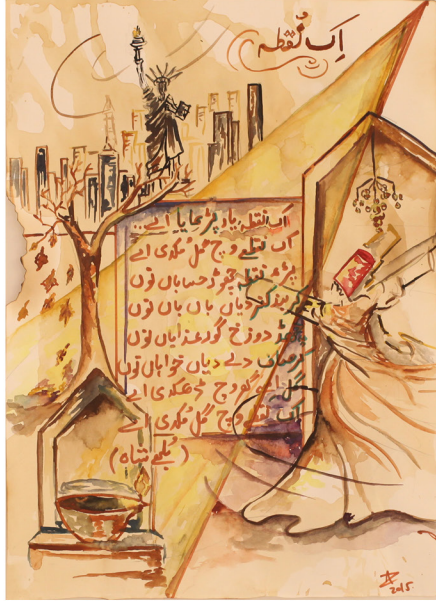 اِک نُقطہ
اک نقطہ یار پڑھایا اے..
اک نقطے وچ گل مکدی اے
پھڑ نقطہ چھوڑ حساباں نوں
کر دور دیاں باں باں نوں
چھڈ دوزخ گور عذاباں نوں
کر صاف دلے دیاں خواباں نوں
گل گھر وچ ڈھکدی اے
اک نقطے وچ گل مکدی اے
(بلھے شاہ)
2015